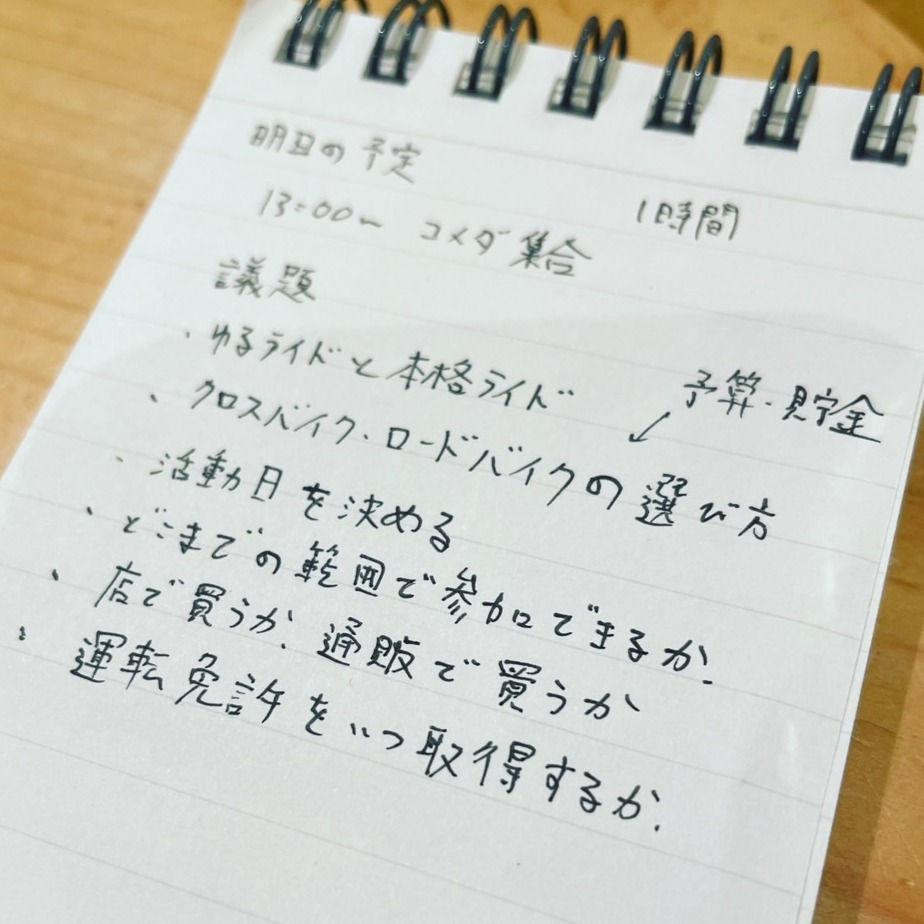 明日の予定
13:00〜 コメダ集合 1時間
議題
・ゆるライドと本格ライド
予算・貯金
・クロスバイク・ロードバイクの選び方
・活動日を決める
・どこまでの範囲で参加できるか.
・店で買うか.通販で買うか
・運転免許をいつ取得するか.